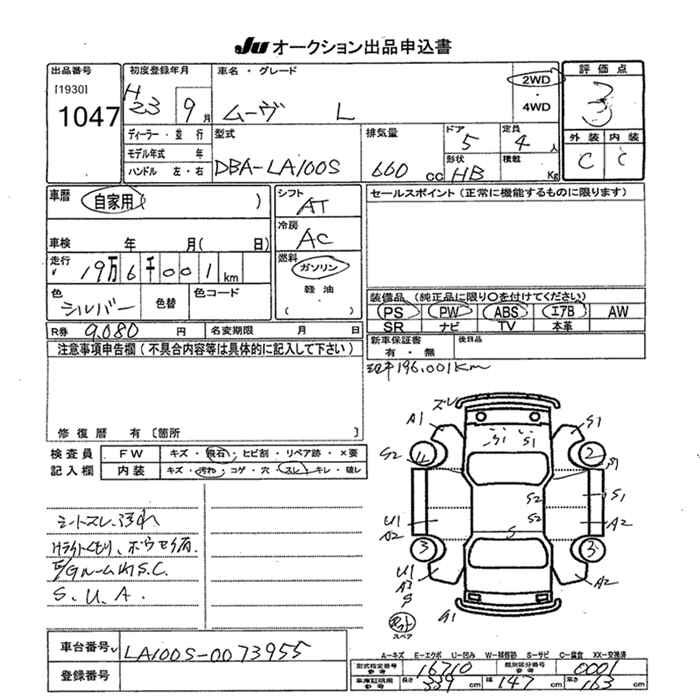 Ju オークション出品申込書
出品番号
[1930]
1047
初度登録年月
H23 9月
ディーラー・並行
モデル年式 年
ハンドル 左・右
車名・グレード
ムーヴ L
2WD
・
4WD
型式
DBA-LA100S
排気量
660 cc
ドア
5
定員
4人
形状
HB
積載
Kg
評価点
3
外装 内装
C C
車歴
自家用( )
車検 年 月( 日)
走行
19万6千001km
色
シルバー
色替
色コード
シフト
AT
冷房
AC
燃料
ガソリン
軽油
( )
R券 9,080 円
名変期限 月 日
セールスポイント(正常に機能するものに限ります)
装備品(純正品に限り○を付けてください)
PS PW ABS エアB AW
SR ナビ TV 本革
新車保証書
有・無
後日品
196.001km
注意事項申告欄(不具合内容等は具体的に記入して下さい)
修復歴 有〔箇所
検査員
記入欄
FW キズ・飛石・ヒビ割・リペア跡・×要
内装 キズ・汚れ・コゲ・穴・スレ・キレ・破レ
シートスレ、汚れ
Hライトくもり、
E/GルームS.C.
S.U.A.
車台番号 LA100S-0073955
登録番号
ズレ
A1
S1
G2
S1 S1
2
S1
S1
S2
S2
U1
A2
A2
S
3
3
U1
A3
S
A2
G1
スペア
A-キズ E-エクボ U-凹み W-補修跡 S-サビ C-腐食 XX-交換済
型式指定番号
参考
16710
類別区分番号
参考
0001
車庫証明用
参考
長さ 339 cm
幅 147 cm
高さ 163 cm